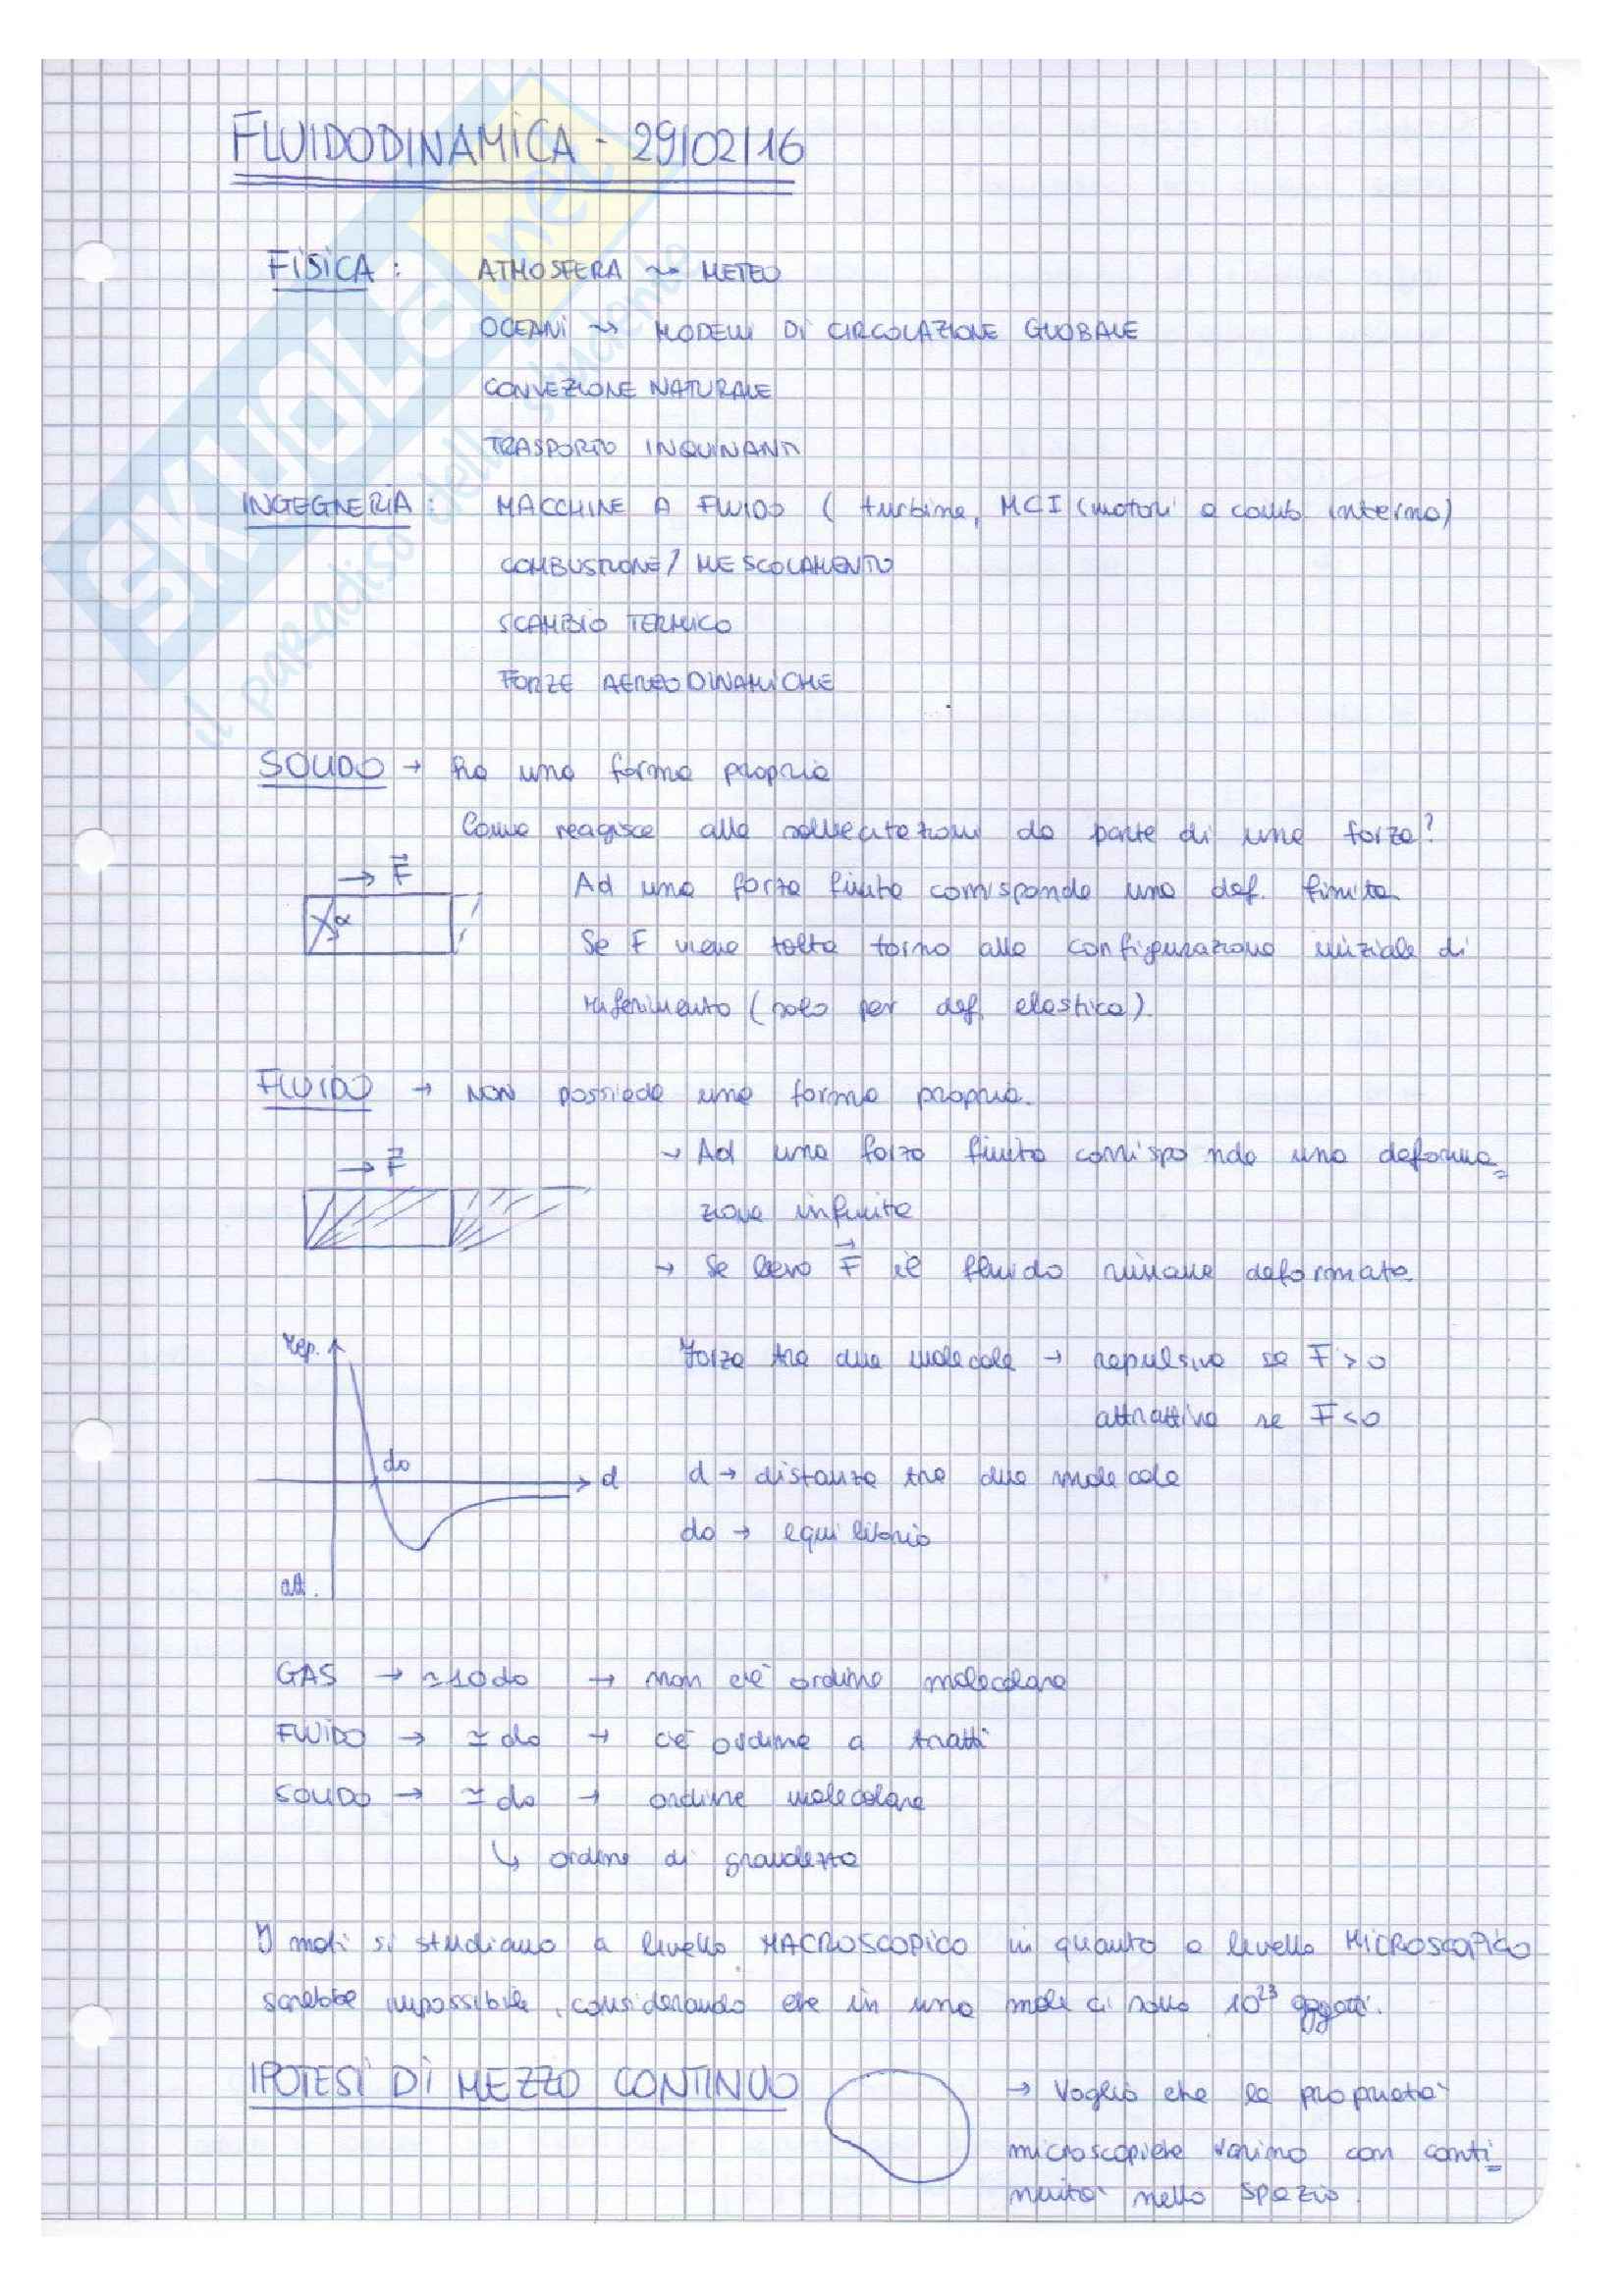 FLUIDODINAMICA - 29/02/16
FISICA : ATMOSFERA ~> METEO
OCEANI ~> MODELLI DI CIRCOLAZIONE GLOBALE
CONVEZIONE NATURALE
TRASPORTO INQUINANTI
INGEGNERIA : MACCHINE A FLUIDO ( turbina, MCI (motori a comb interna)
COMBUSTIONE / MESCOLAMENTO
SCAMBIO TERMICO
FORZE AEREODINAMICHE
SOLIDO → ha una forma propria
Come reagisce alle sollecitazioni da parte di una forza?
→ F Ad una forza finita corrisponde una def. finita
α Se F viene tolta torno alla configurazione iniziale di
riferimento (solo per def. elastica).
FLUIDO → NON possiede una forma propria.
→ F → Ad una forza finita corrisponde una deforma=
zione infinita
→ Se levo F il fluido rimane deformato
rep. Forza tra due molecole → repulsiva se F > 0
attrattiva se F < 0
do d d → distanza tra due molecole
do → equilibrio
att.
GAS → ≃10do → non c'è ordine molecolare
FLUIDO → ≃ do → c'è ordine a tratti
SOLIDO → ≃ do → ordine molecolare
↳ ordine di grandezza
I moti si studiano a livello MACROSCOPICO in quanto a livello MICROSCOPICO
sarebbe impossibile, considerando che in una mole ci sono 10²³ oggetti.
IPOTESI DI MEZZO CONTINUO → Voglio che le proprietà
microscopiche varino con conti=
nuità nello spazio.
SKUOLA.net
il paradiso dello studente